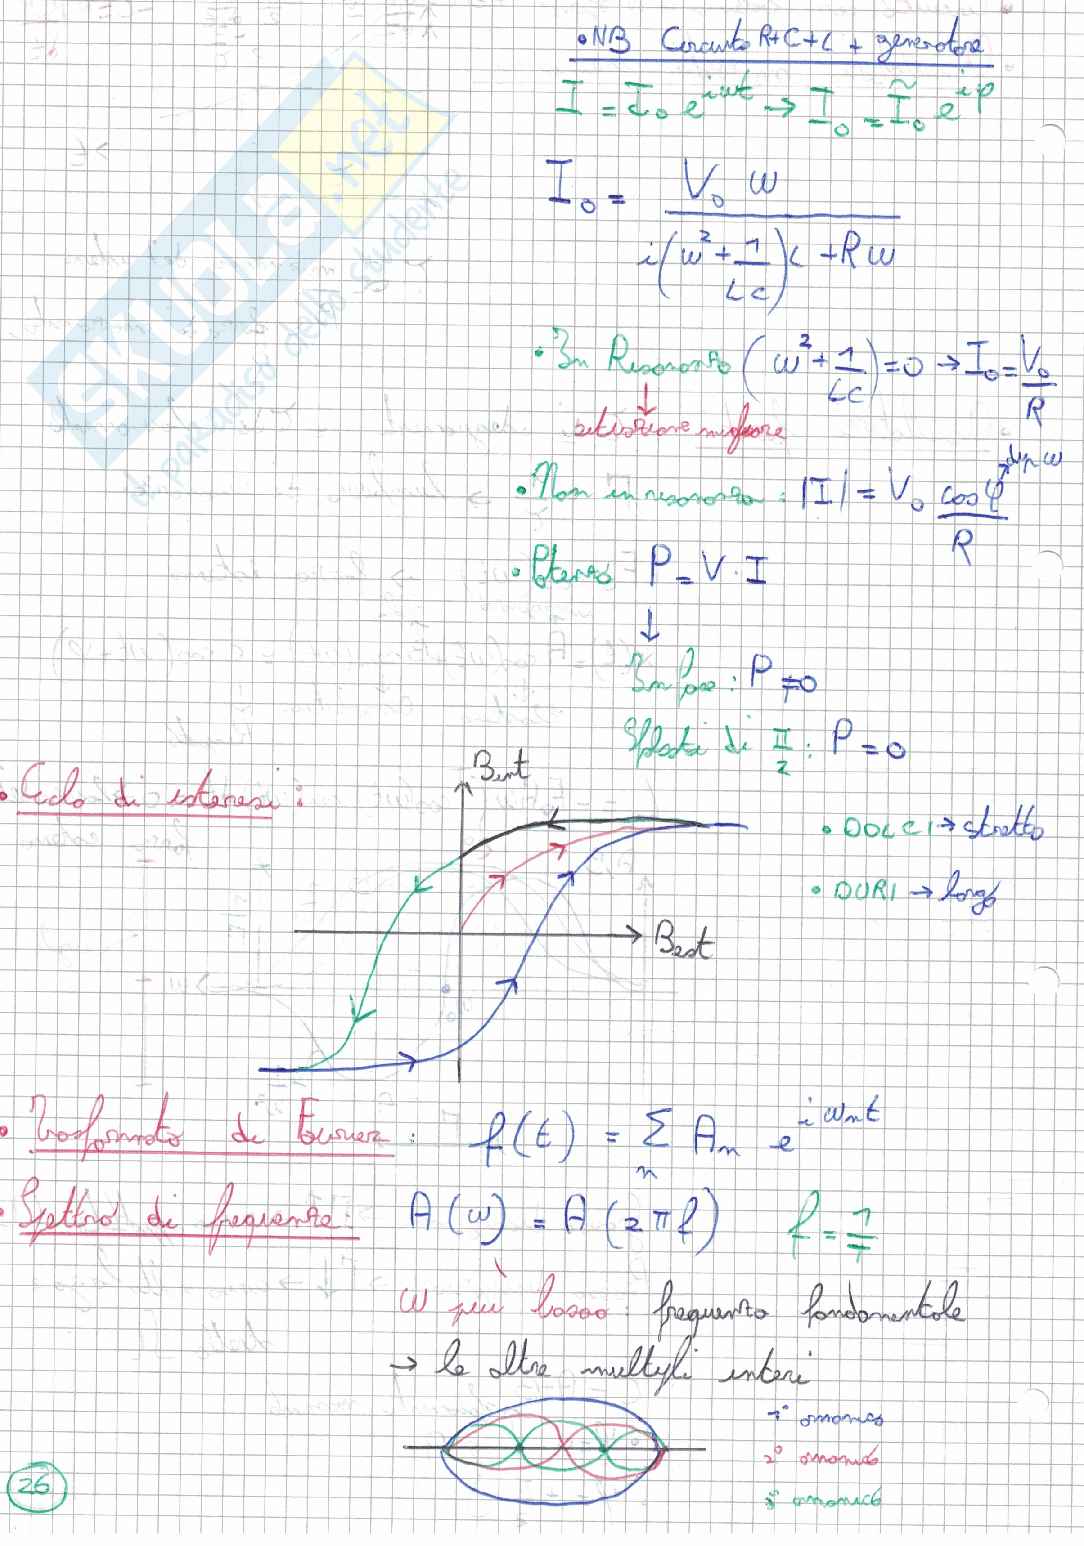 •NB Circuito R+C+L + generatore
I = I₀ e^{iωt} → I₀ = Ĩ₀ e^{iφ}
I₀ = V₀ ω / (i(ω² + 1/LC)L + Rω)
• In Risonanza (ω² + 1/LC) = 0 → I₀ = V₀/R
↓
situazione migliore
• Non in risonanza: |I| = V₀ cosφ/R
• Potenza P = V · I
↓
In fase: P ≠ 0
Sfasati di π/2: P = 0
• Ciclo di isteresi:
Bint
Best
• DOLCI → stretto
• DURI → largo
• Trasformata di Fourier: f(t) = Σₙ Aₙ e^{iωnt}
• Spettro di frequenze: A(ω) = A(2πf) f = 1/T
ω più basso: frequenza fondamentale
→ le altre multipli interi
1° armonica
2° armonica
3° armonica
26
SKUOLA.net
il paradiso dello studente